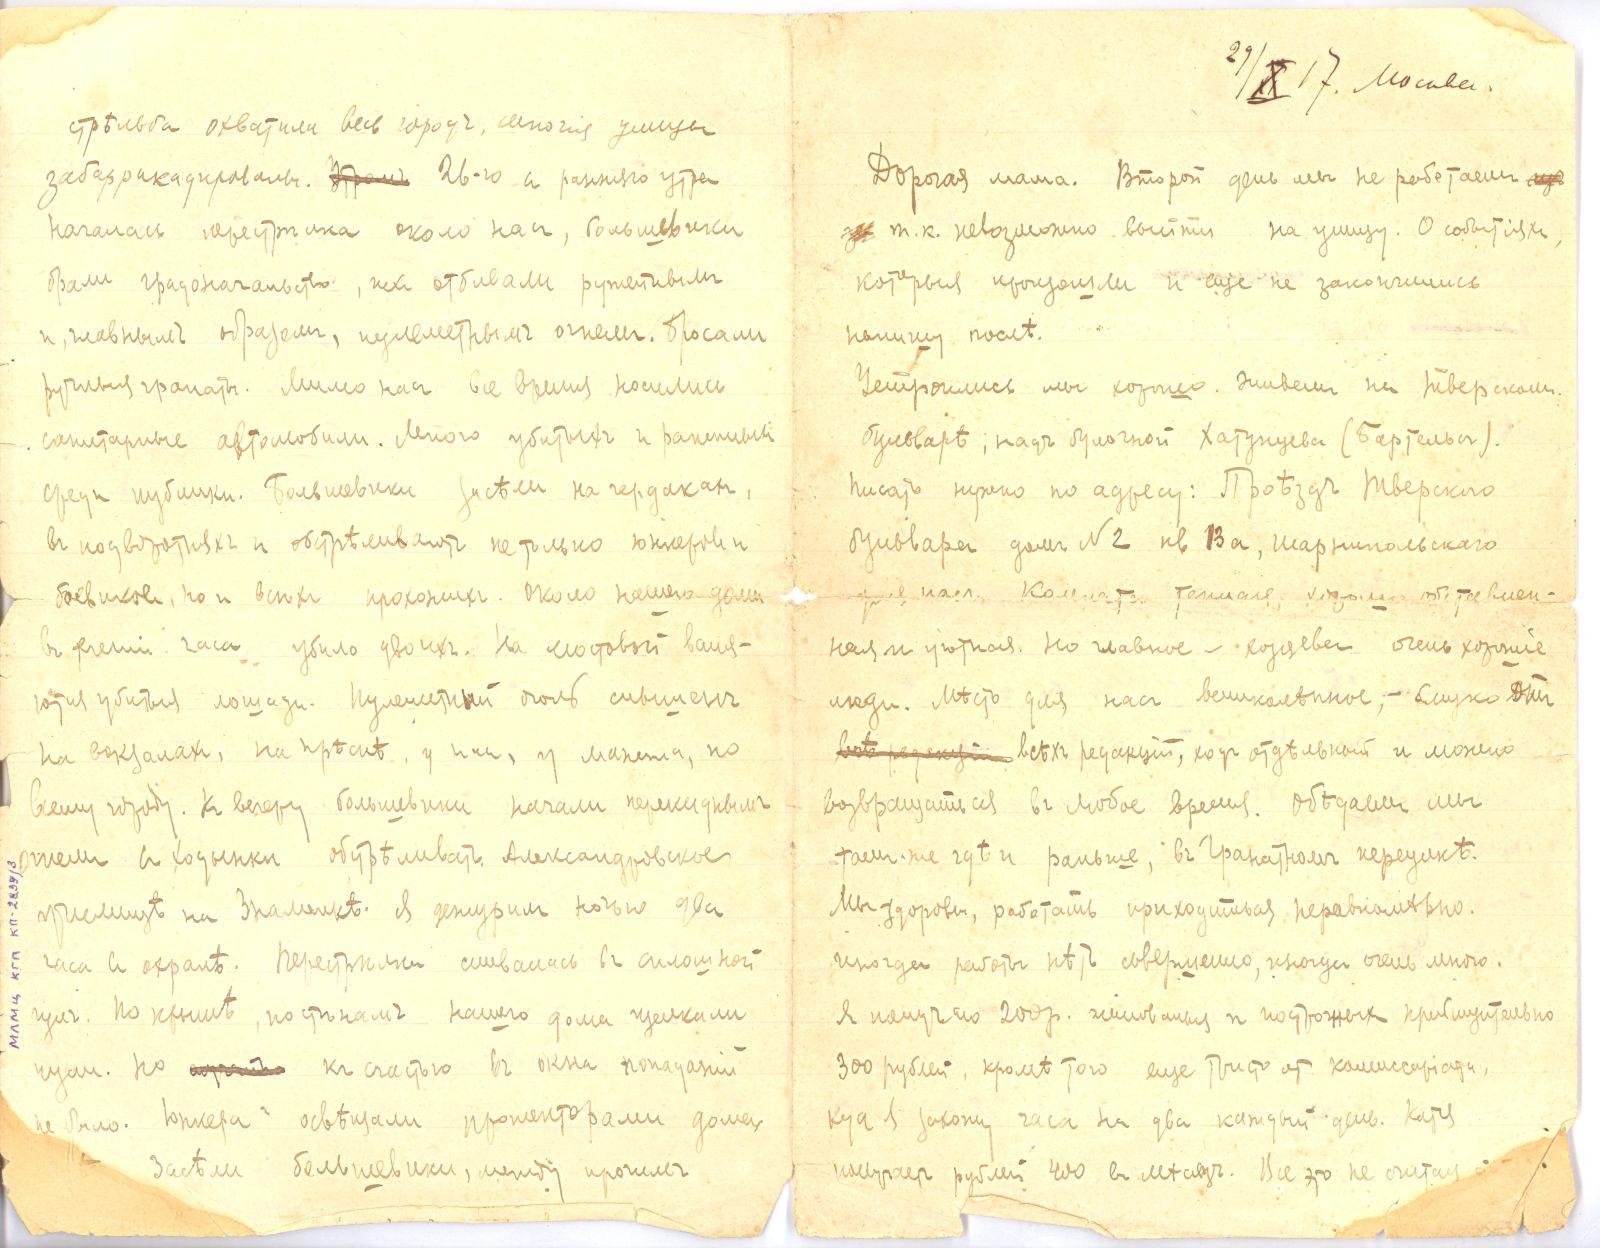 29/X 17. Москва.
Дорогая мама. Второй день мы не работаем
т.к. невозможно выйти на улицу. О событіяхъ,
которыя произошли и еще не закончились
напишу послѣ.
Устроились мы хорошо. Живемъ на Тверскомъ
бульварѣ, надъ булочной Хатунцева (Бартельсъ).
Писать нужно по адресу: Проѣздъ Тверского
бульвара домъ №2 кв 13а, Шарнипольскаго
для насъ. Комната теплая, хорошо обставлен-
ная и уютная. Но главное – хозяева очень хорошіе
люди. Мѣсто для насъ великолѣпное, – близко отъ
всѣхъ редакцій, ходъ отдѣльный и можно
возвращаться въ любое время. Обѣдаемъ мы
тамъ-же гдѣ и раньше, въ Гранатномъ переулкѣ.
Мы здоровы, работать приходится неравномѣрно.
иногда работы нѣтъ совершенно, иногда очень много.
Я получаю 200 р. жалованья и построчныхъ приблизительно
300 рублей, кромѣ того еще триста отъ комиссаріата,
куда я захожу часа на два каждый день. Катя
получаетъ рублей 400 въ мѣсяцъ. Все это не считая
стрѣльба охватила весь городъ, многія улицы
забаррикадированы. Утромъ 26-го съ ранняго утра
началась перестрѣлка около насъ, большевики
брали градоначальство, ихъ отбивали ружейнымъ
и, главнымъ образомъ, пулеметнымъ огнемъ. Бросали
ручныя гранаты. Мимо насъ все время носились
санитарные автомобили. Много убитыхъ и раненыхъ
среди публики. Большевики засѣли на чердакахъ,
въ подворотняхъ и обстрѣливаютъ не только юнкеровъ и
боевиковъ, но и всѣхъ прохожихъ. Около нашего дома
въ теченіи часа убило двоихъ. На мостовой валя-
ются убитыя лошади. Пулеметный огонь слышенъ
на вокзалахъ, на Прѣснѣ, у насъ, у манежа, по
всему городу. Къ вечеру большевики начали перекиднымъ
огнемъ съ Ходынки обстрѣливать Александровское
училище на Знаменкѣ. Я дежурилъ ночью два
часа въ охранѣ. Перестрѣлка сливалась въ сплошной
гулъ. По крышѣ, по стѣнамъ нашего дома щелкали
пули. Но къ счастью въ окна попаданій
не было. Юнкера освѣщали прожекторами дома,
Засѣли большевики, между прочимъ
МЛМЦ КГП КП-2839/3